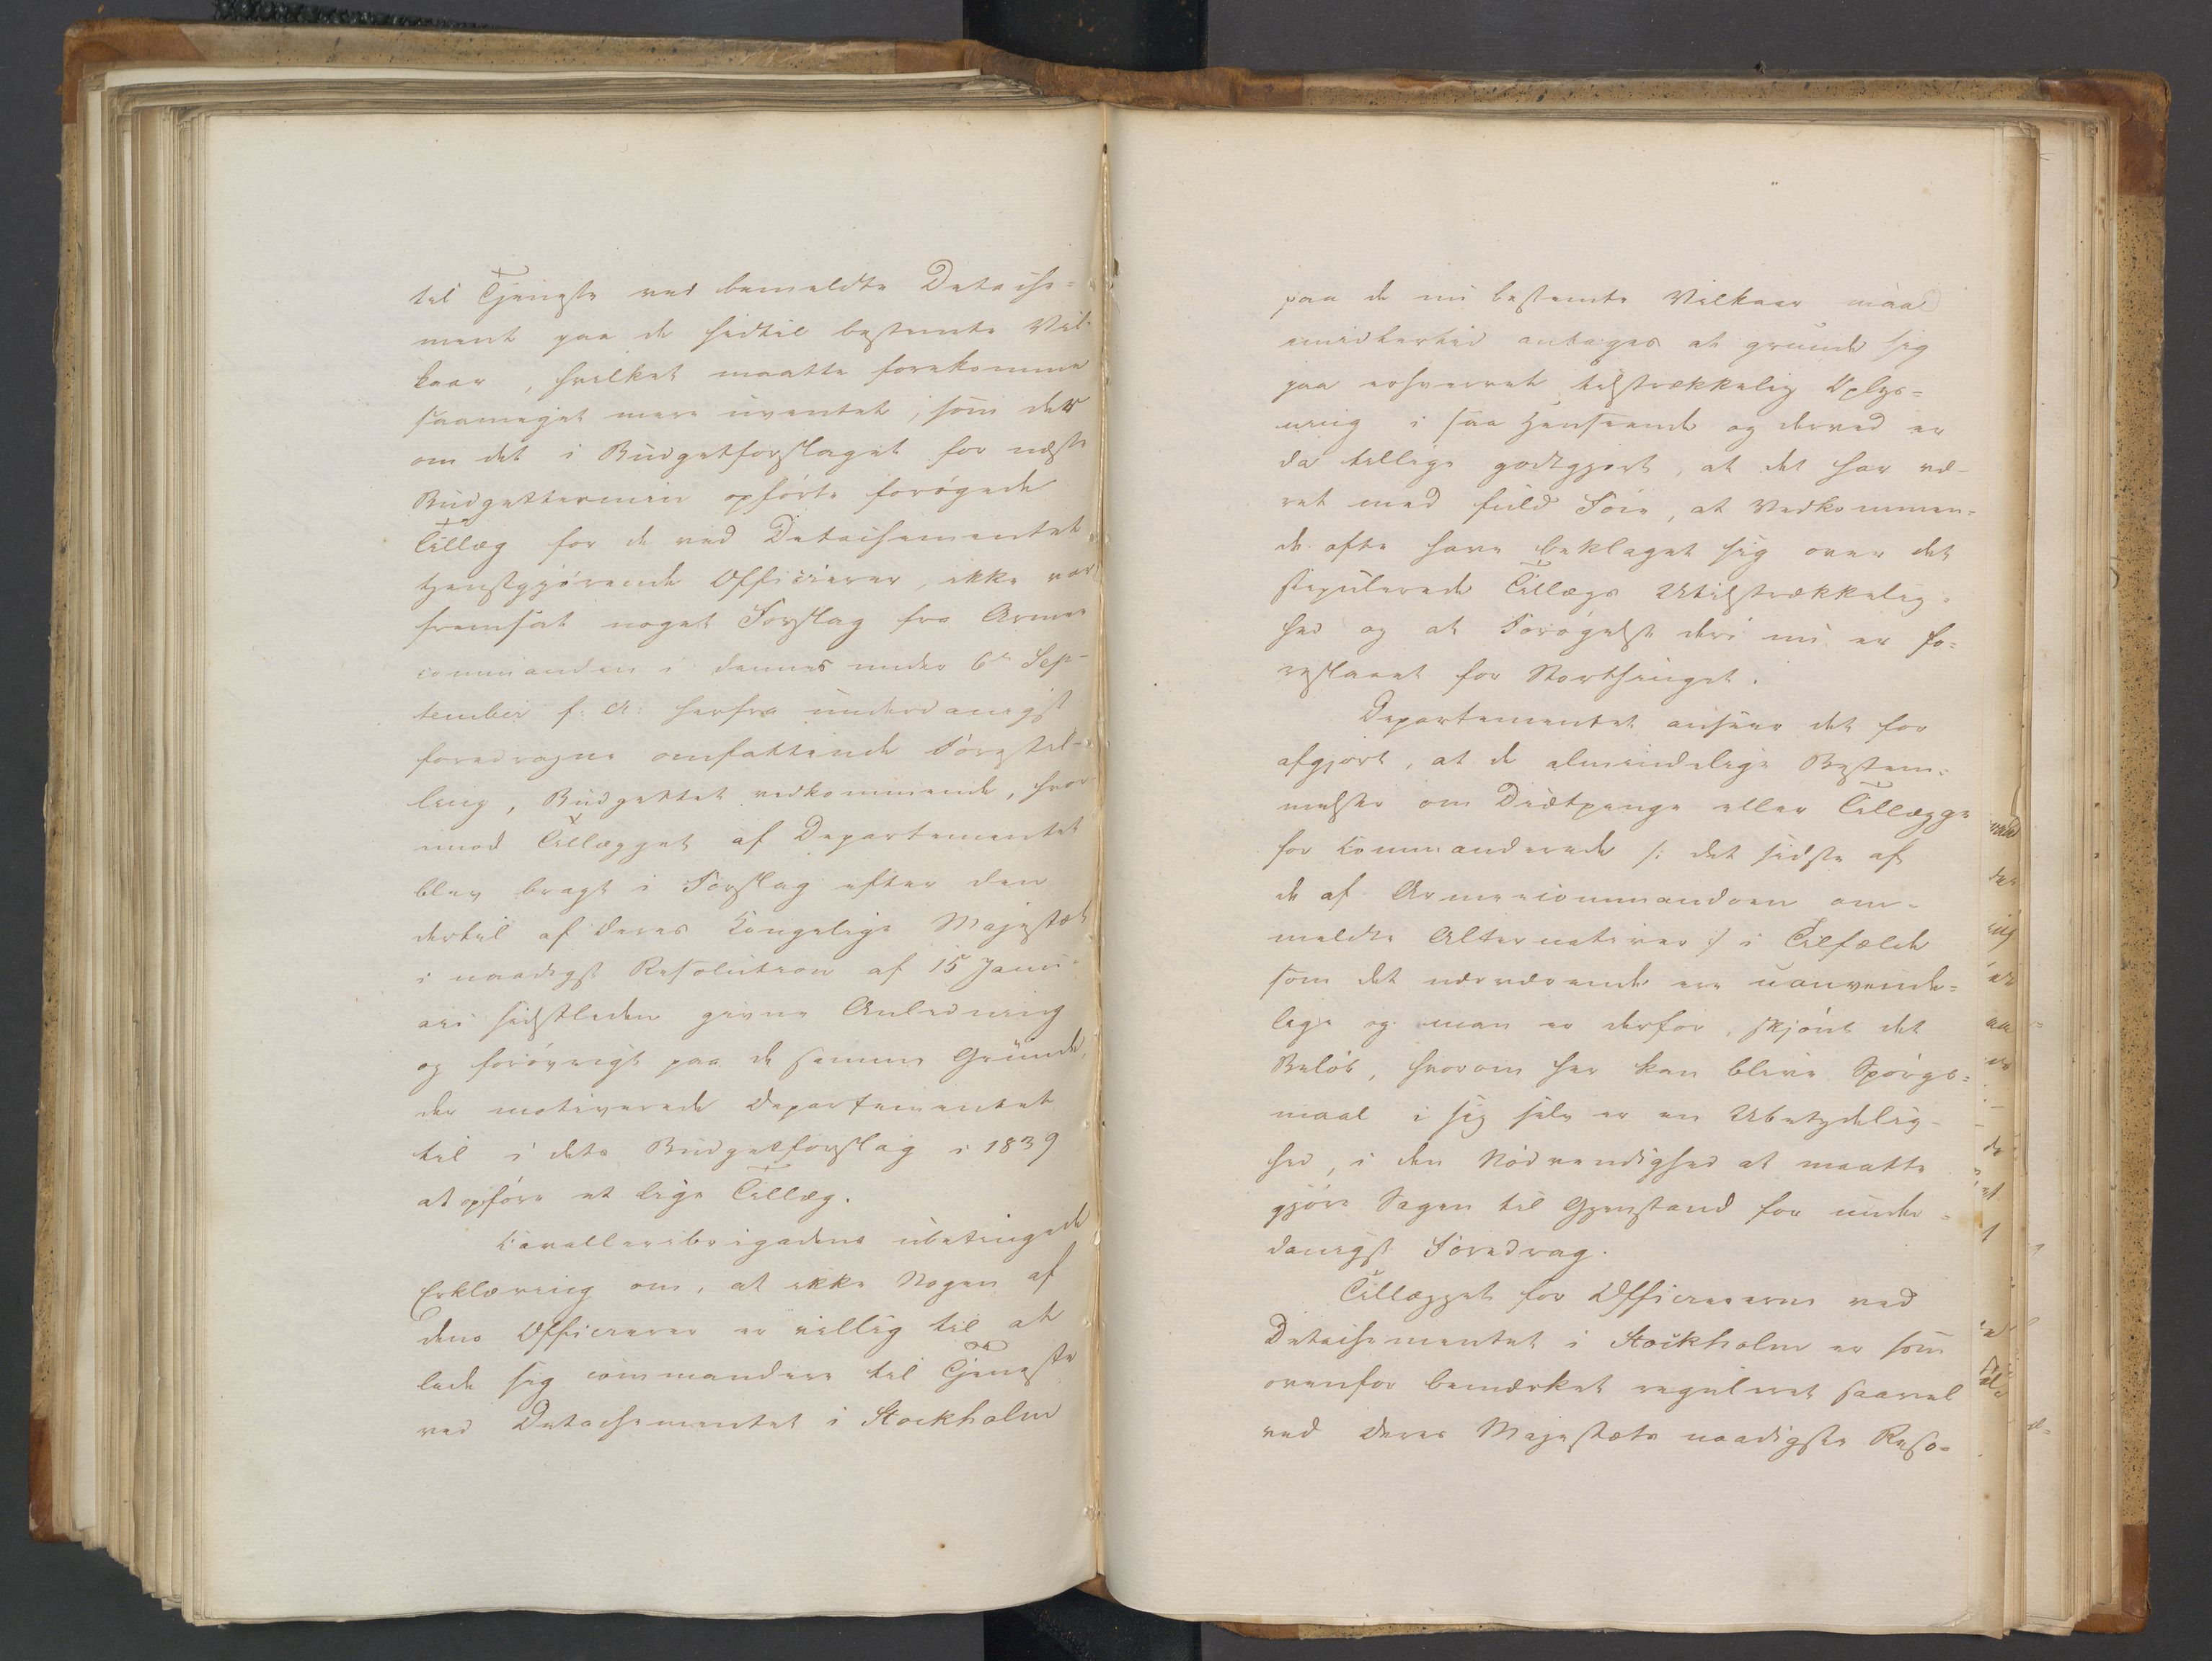 til Tjeneste ved bemeldte Detache-
ment paa de hidtil bestemte Vil-
kaar, hvilket maatte forekomme
saameget mere uventet, som der
om det i Budgetforslaget for næste
Budgettermin opførte forøgede
Tillæg for de ved Detachementet
tjenstgjørende Officierer, ikke var
fremsat noget Forslag fra Armee
commandoen i dennes under 6te Sep-
tember f. A. herfra underdanigst
foredragne omfattende Forestil-
ling, Budgettet vedkommende, hvor
imod Tillægget af Departementet
blev bragt i Forslag efter den
dertil af Deres Kongelige Majestæt
i naadigst Resolution af 15 Janu-
ari sidstleden givne Anledning
og forøvrigt paa de samme Grunde,
der motiverede Departementet
til i dets Budgetforslag i 1839
at opføre et lige Tillæg.
Cavalleribrigadens ubetingede
Erklæring om, at ikke Nogen af
dens Officierer er villig til at
lade sig commandere til Tjeneste
ved Detachementet i Stockholm
paa de nu bestemte Vilkaar maa
imidlertid antages at grunde sig
paa erhvervet tilstrækkelig Oplys-
ning i saa Henseende og derved er
da tillige godtgjort, at det har væ-
ret med fuld Føie, at Vedkommen-
de ofte have beklaget sig over det
stipulerede Tillægs Utilstrækkelig-
hed og at Forøgelse deri nu er fo-
reslaaet for Storthinget.
Departementet ansseer det for
afgjort, at de almindelige Bestem-
melser om Diætpenge eller Tillægge
for Commanderede /: det sidste af
de af Armeecommandoen om-
meldte Alternativer :/ i Tilfælde
som det nærværende ere uanvende-
lige og man er derfor, skjønt det
Beløb, hvorom her kan blive Spørgs-
maal i sig selv er en Ubetydelig-
hed, i den Nødvendighed at maatte
gjøre Sagen til Gjenstand for under-
danigst Foredrag.
Tillægget for Officiererne ved
Detachementet i Stockholm er som
ovenfor bemærket reguleret saavel
ved Deres Majestæts naadigste Reso-